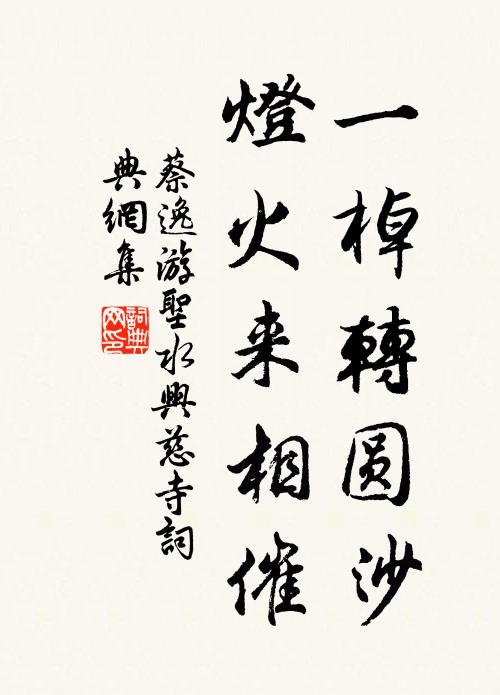 一棹轉圆沙
燈火来相催
蔡逸游聖水興慈寺詞
典網集
詞典
网印